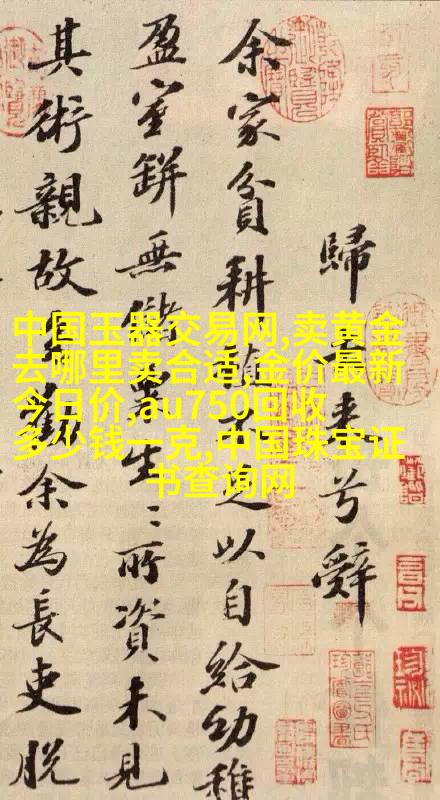 歸去来兮辭
余家貧耕植不足以自給幼稚
盈室缾無儲粟生〻所資未見
其術親故多勸余為長吏脱
中国玉器交易网,卖黄金
去哪里卖合适,金价最新
今日价,au750回收
多少钱一克,中国珠宝证
书查询网